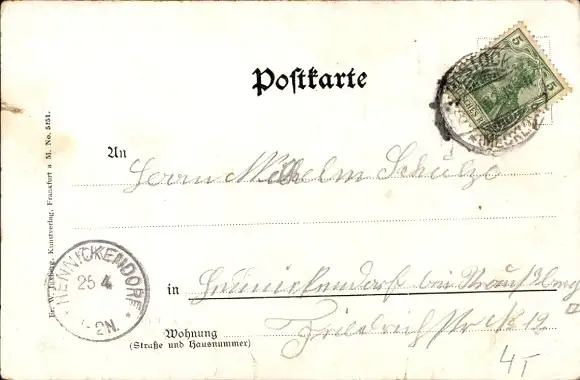 Postkarte
5
ROSTOCK
(MECKL.)
An
Herrn Wilhelm Schulze
HENNICKENDORF
25 4
-2N.
in
Hennickendorf bei
Wohnung
(Straße und Hausnummer)
Friedrichstr No 12
Kunstverlag, Frankfurt a M. No. 5151.